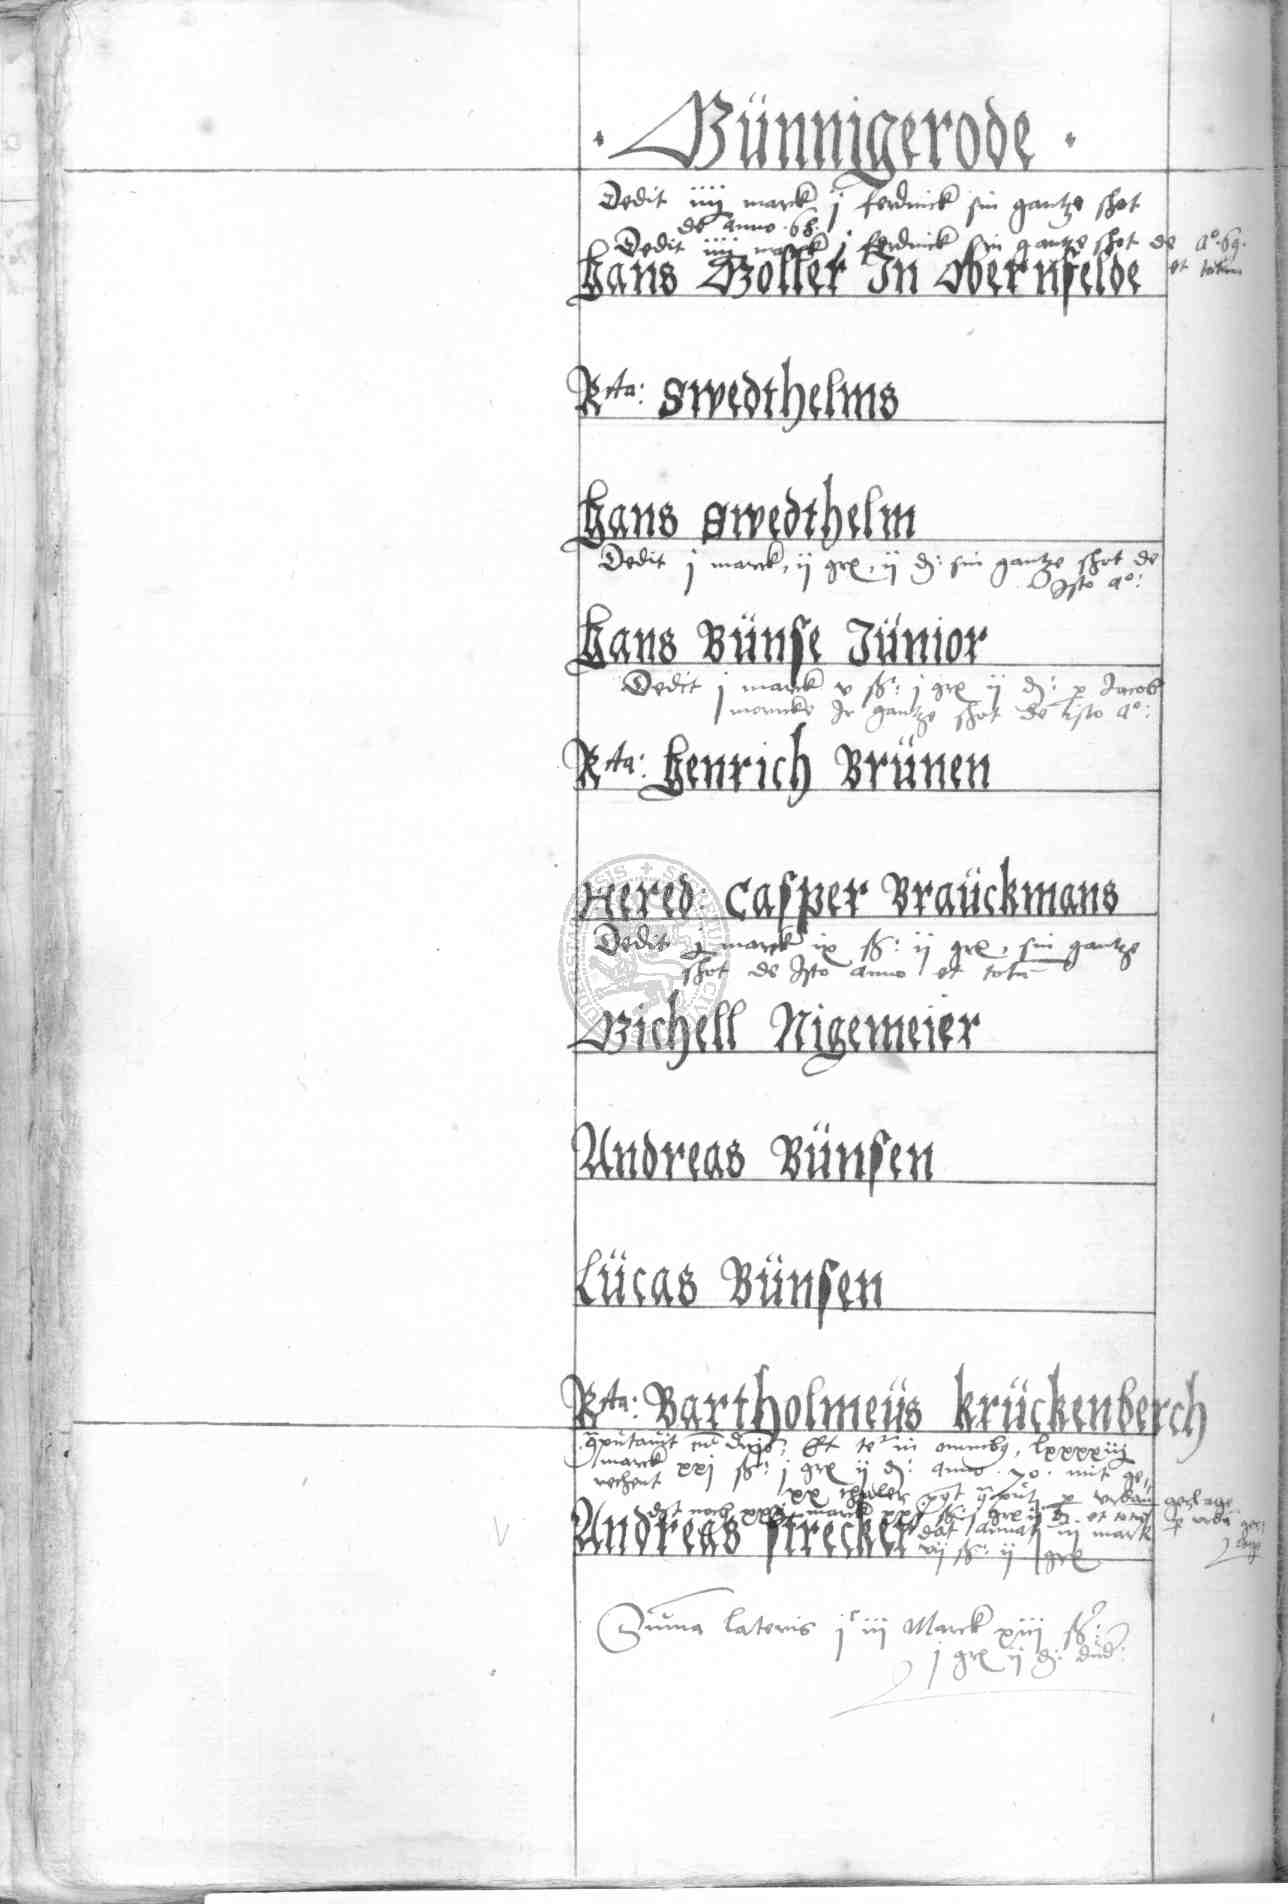 · Bünnigerode ·
Dedit iiij marck j ferdinck sin gantze shot
de anno .68.
Dedit iiij marck j ferdinck sin gantze shot de aº. 69.
et totum
Hans Woller In Obernfelde
Rta: Swedthelms
Hans Swedthelm
Dedit j marck, ij gr, ij d: sin gantze shot de
Isto aº:
Hans Bünse Jünior
Dedit j marck v ß: j gr ij d: p Jacob
Ir gantze shot de isto aº:
Rta: Henrich Brünen
Hered: Casper Braückmans
Dedit marck ix ß: ij gr, sin gantze
shot de Isto anno et totu
Michell Nigemeier
Andreas Bünsen
Lücas Bünsen
Rta: Bartholmeüs Krückenberch
Et in lxxxxiij
marck xxj ß: j gr ij d: anno .70. mit
rechent
xx thaler p
noch marck xxj ß: j gr ij et
Andreas Strecker
dat iij marck
vij ß: ij gr
Suma lateris jc iij Marck xiij ß:
j gr ij d: dud: